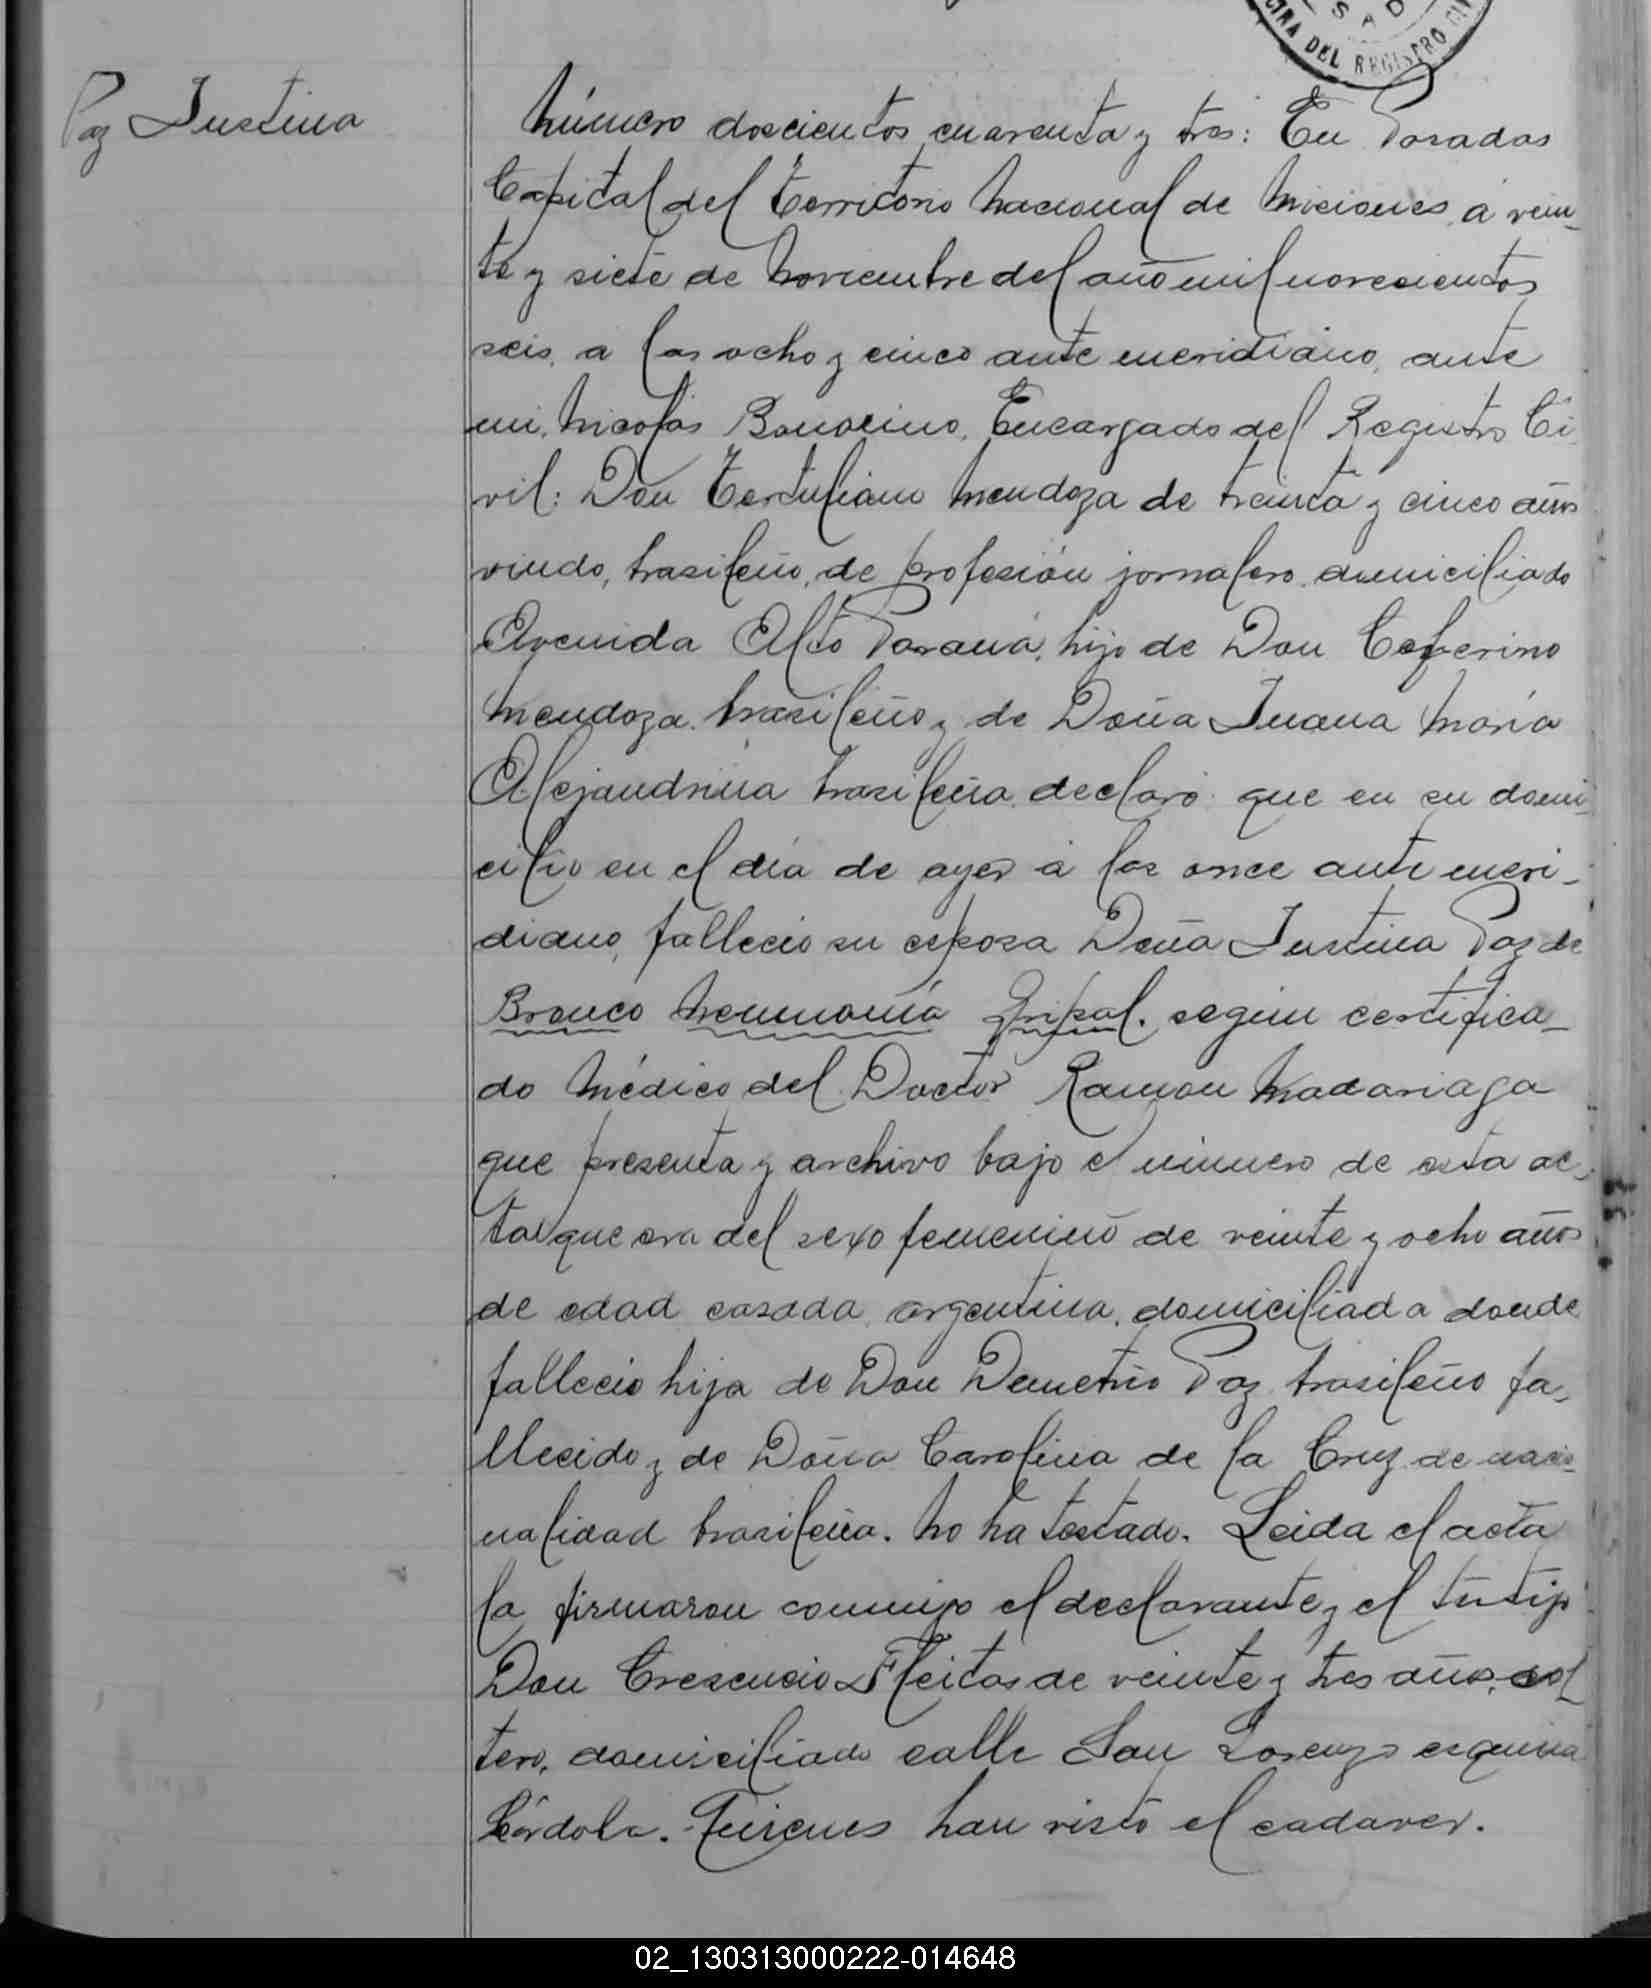 SAD
CINA DEL REGISTRO CIV
Paz Justina
Número doscientos cuarenta y tres: En Posadas
Capital del Territorio Nacional de Misiones, á vein_
te y siete de Noviembre del año mil novecientos
seis, a las ocho y cinco ante meridiano, ante
mi, Nicolás Bonorino, Encargado del Registro Ci
vil: Don Tertuliano Mendoza de treinta y cinco años
viudo, brasileño, de profesión jornalero, domiciliado
Avenida Alto Paraná, hijo de Don Ceferino
Mendoza, brasileño y de Doña Juana María
Alejandrina brasileña, declaró: que en su domi_
cilio en el día de ayer á las once ante meri_
diano, falleció su esposa Doña Justina Paz de
Bronco Neumonía Gripal. según certifica_
do Médico del Doctor Ramon Madariaga
que presenta y archivo bajo el número de esta ac_
ta que era del sexo femenino de veinte y ocho años
de edad casada, argentina, domiciliada donde
falleció hija de Don Demetrio Paz brasileño fa_
llecido y de Doña Carolina de la Cruz de nacio_
nalidad brasileña. No ha testado. Leida el acta
la firmaron conmigo el declarante y el testigo
Don Crescencio Fleitas de veinte y tres años, sol
tero, domiciliado calle San Lorenzo esquina
Córdoba. Quienes han visto el cadaver.
02_130313000222-014648